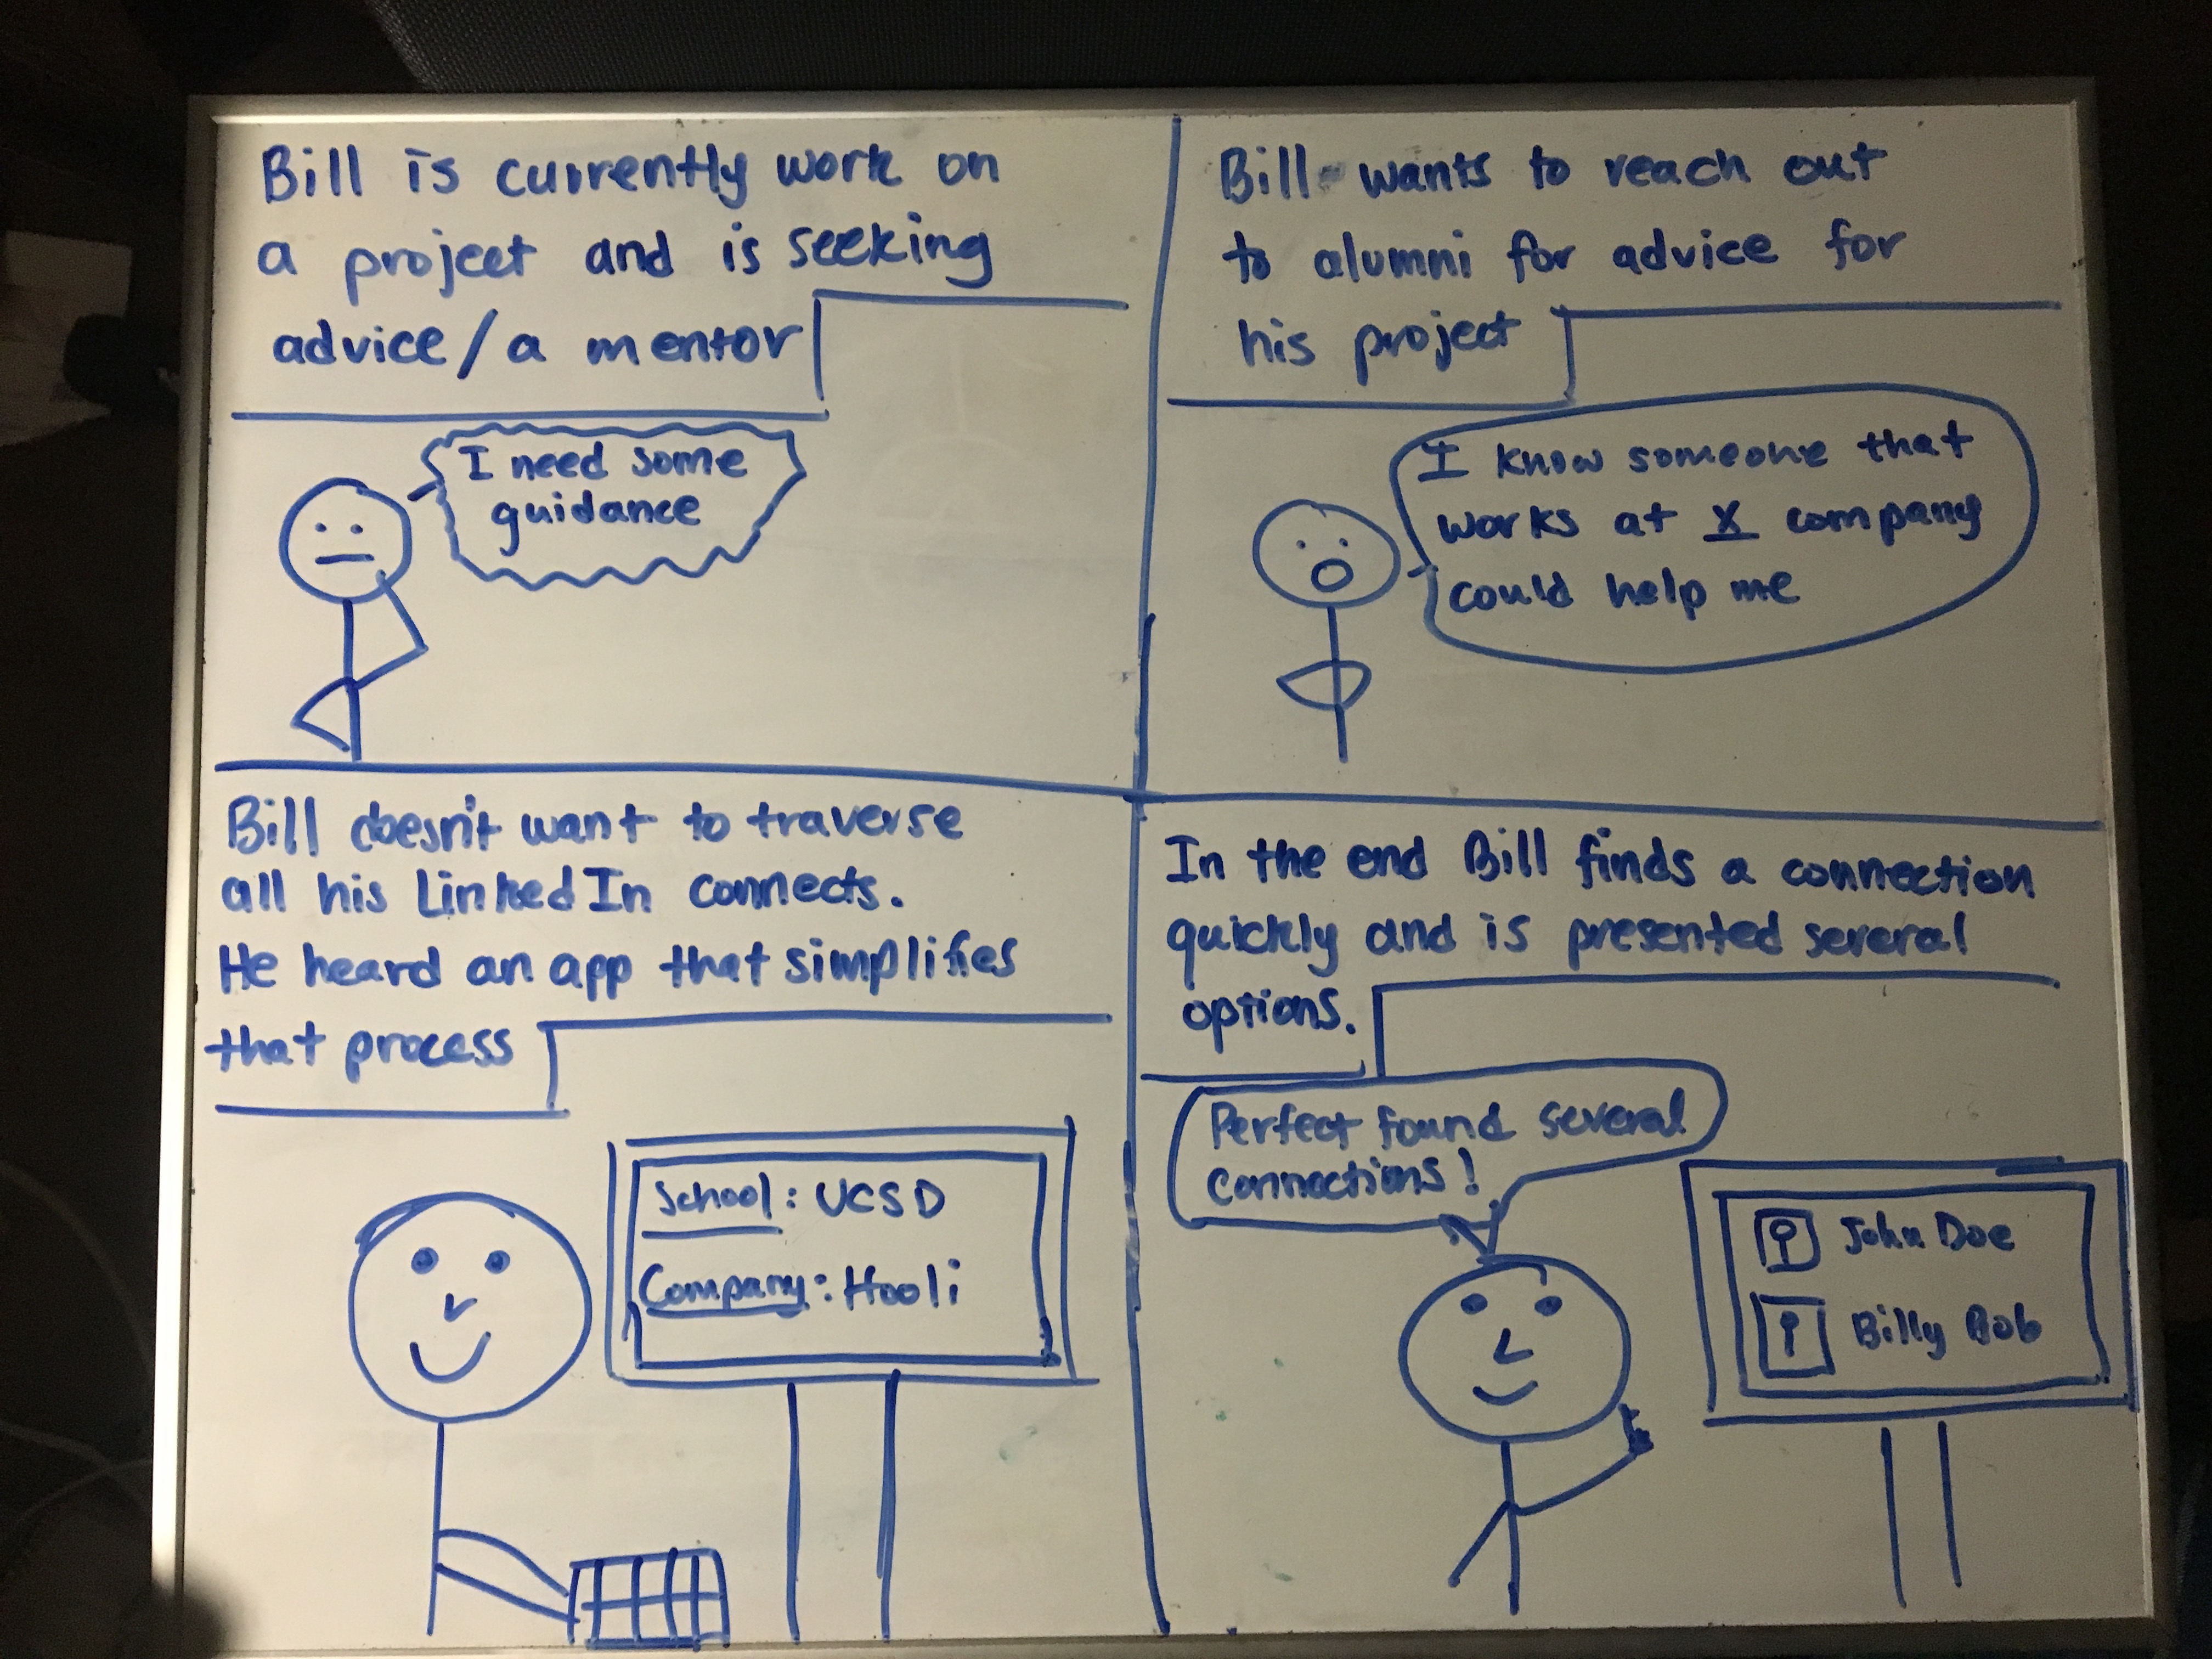 Bill is currently work on
a project and is seeking
advice/a mentor
I need some
guidance
Bill wants to reach out
to alumni for advice for
his project
I know someone that
works at X company
could help me
Bill doesn't want to traverse
all his LinkedIn connects.
He heard an app that simplifies
that process
School: UCSD
Company: Hooli
In the end Bill finds a connection
quickly and is presented several
options.
Perfect found several
connections!
John Doe
Billy Bob